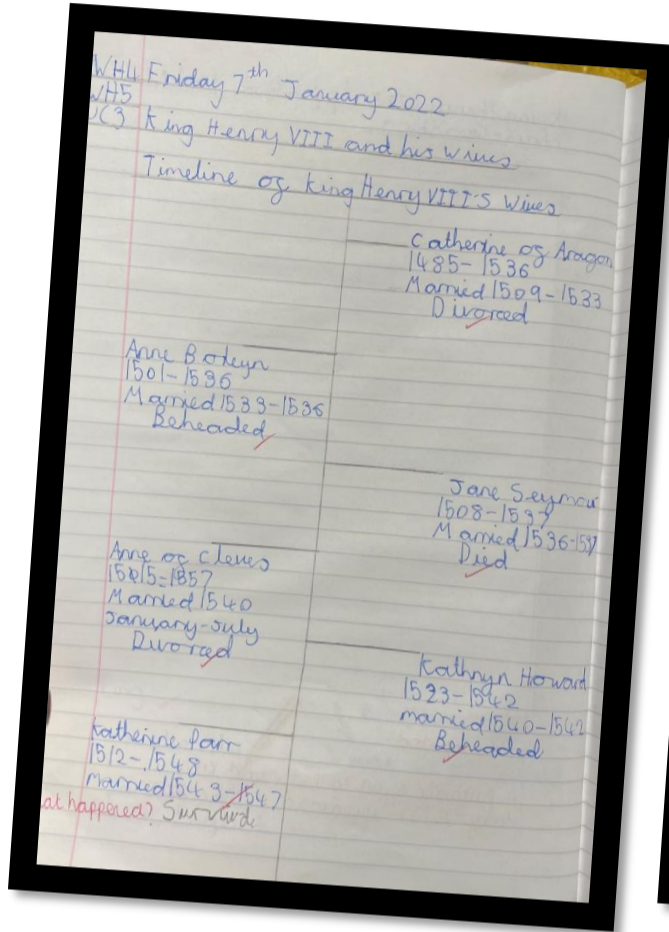 WH4 Friday 7th January 2022
WH5
C3 King Henry VIII and his wives
Timeline of King Henry VIII'S Wives
Catherine of Aragon
1485-1536
Married 1509-1533
Divorced
Anne Boleyn
1501-1536
Married 1533-1536
Beheaded
Jane Seymour
1508-1537
Married 1536-1537
Died
Anne of Cleves
1515-1557
Married 1540
January-July
Divorced
Kathryn Howard
1523-1542
married 1540-1542
Beheaded
Katherine Parr
1512-1548
Married 1543-1547
at happened? Survived